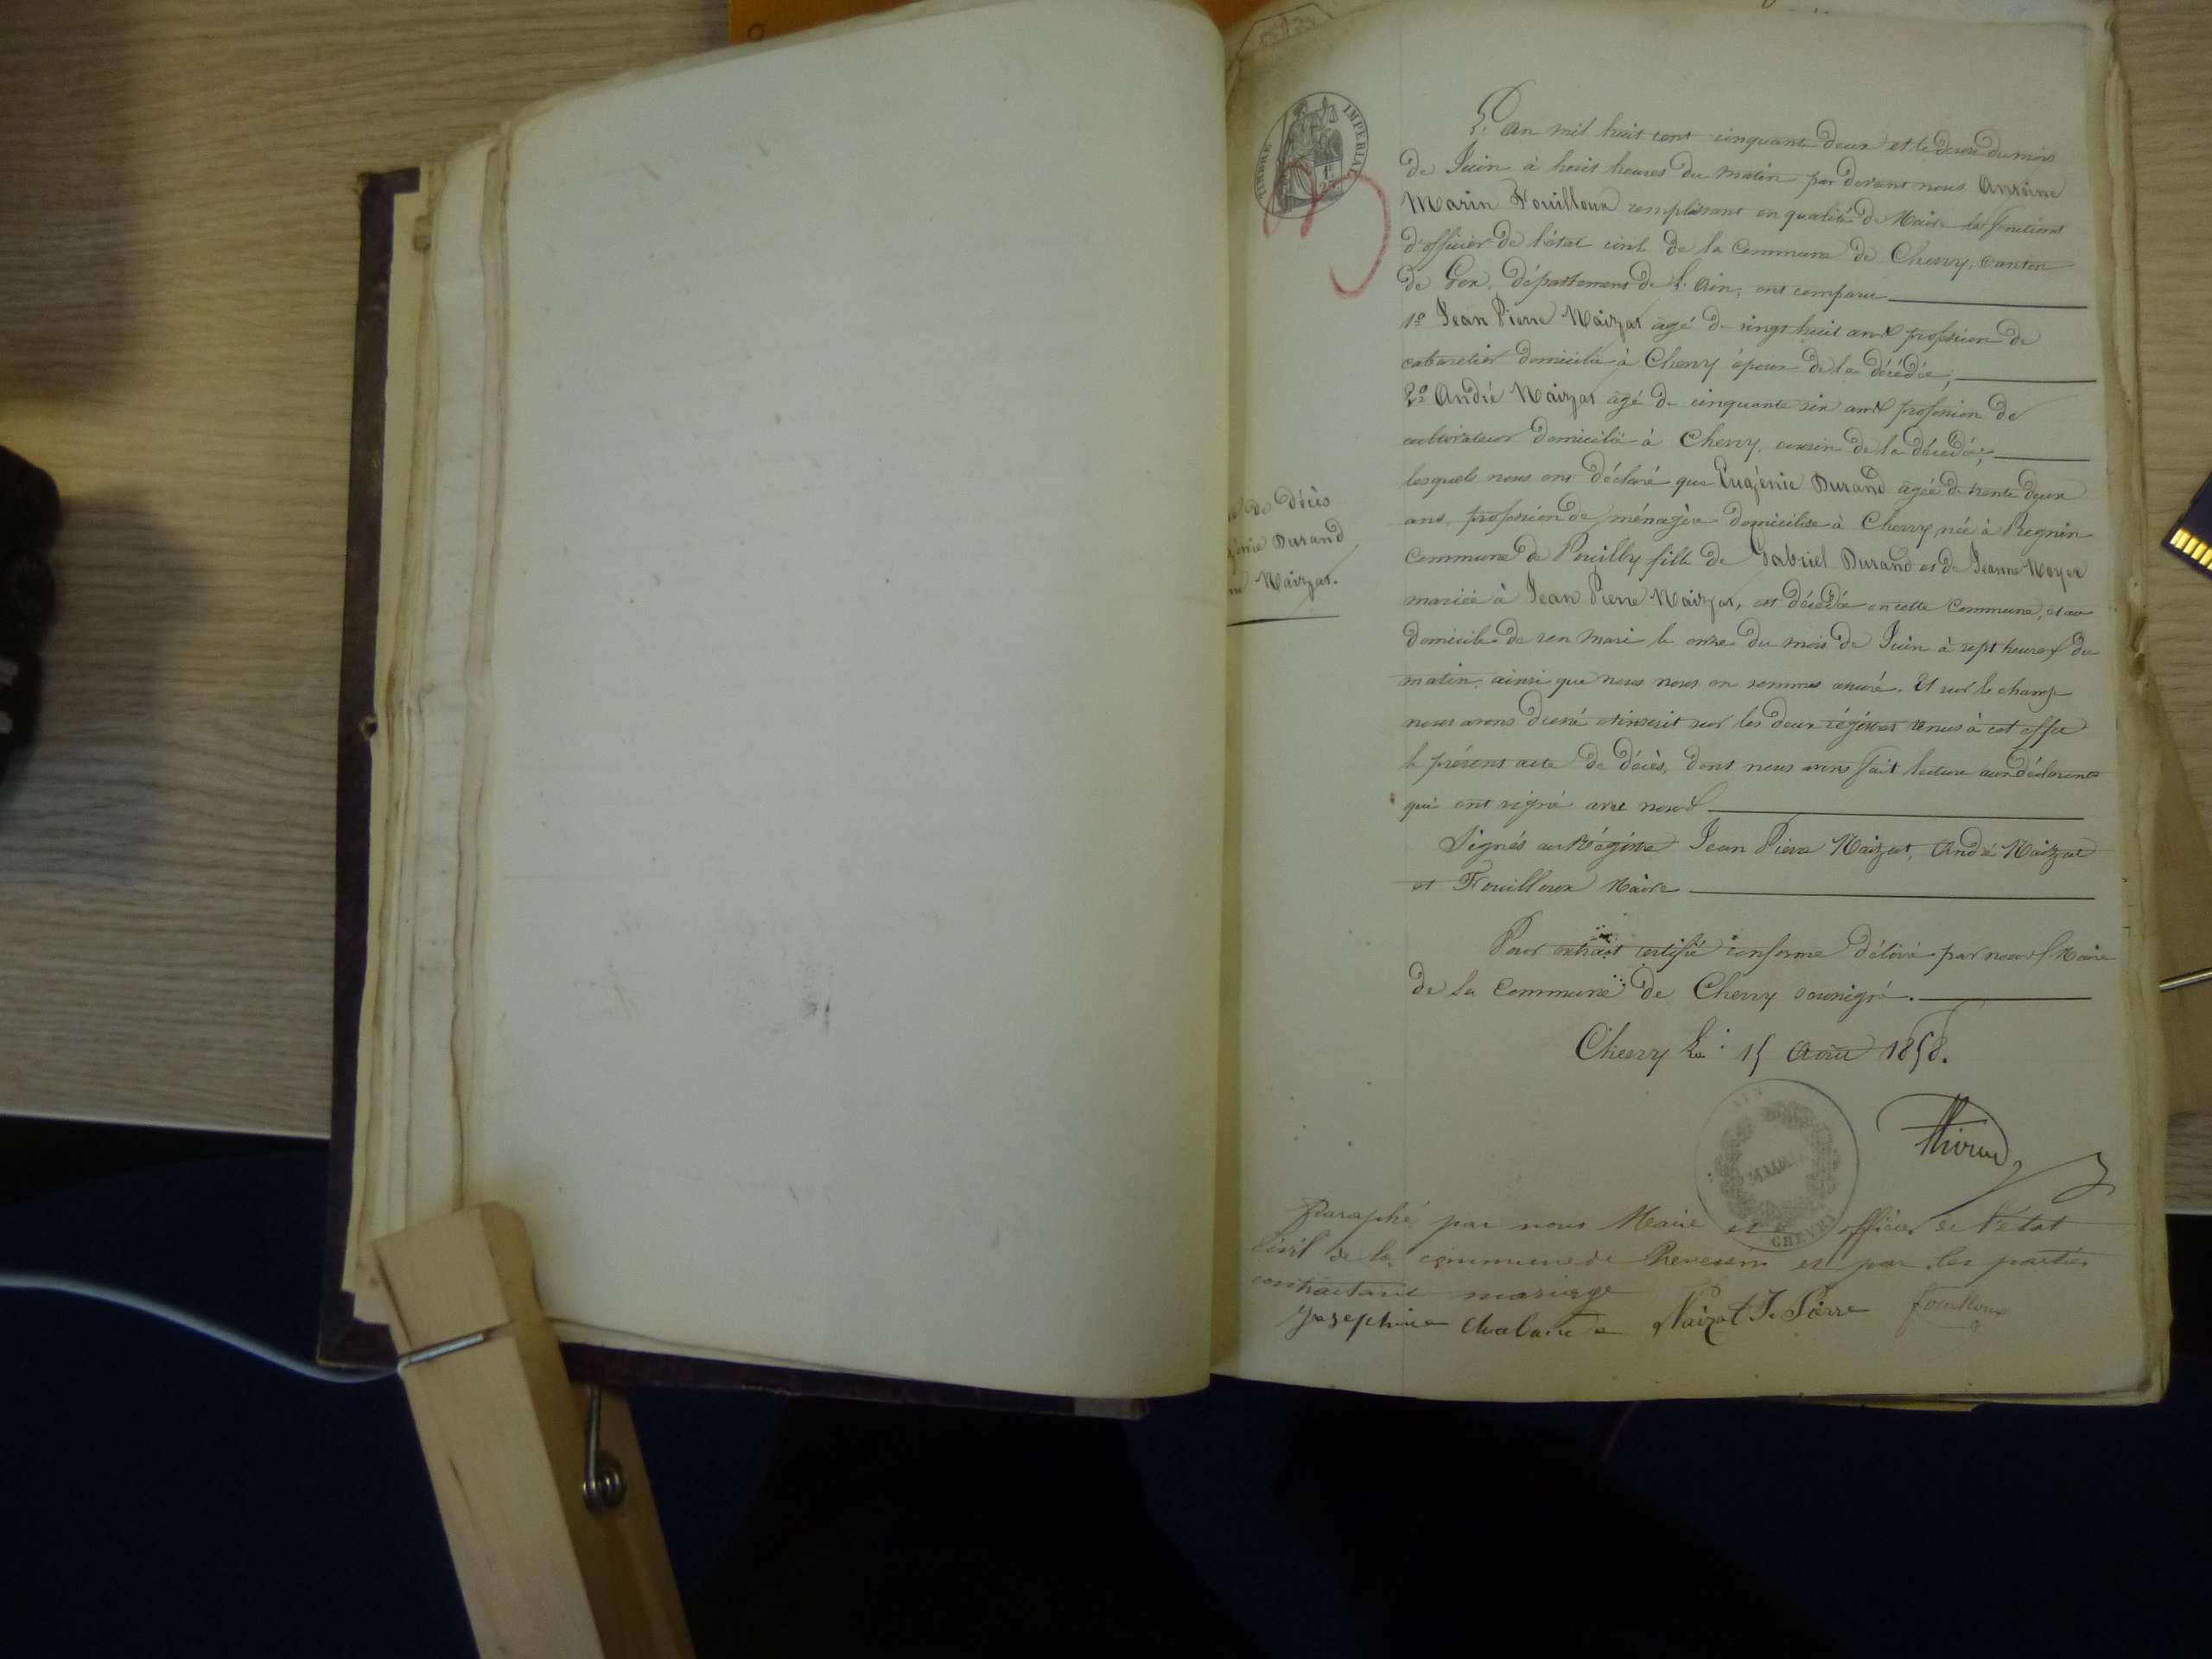 TIMBRE IMPERIAL
L'an mil huit cent cinquante deux et le douze du mois
de Juin à huit heures du matin par devant nous Antoine
Marin Fouilloux remplissant en qualité de Maire les fonctions
d'officier de l'état civil de la Commune de Chevry, canton
de Gex, département de l'Ain, ont comparu
1º Jean Pierre Naizat agé de vingt huit ans profession de
cabaretier domicilié à Chevry époux de la décédée,
2º André Naizat agé de cinquante six ans profession de
cultivateur domicilié à Chevry, cousin de la décédée;
lesquels nous ont déclaré que Eugénie Durand agée de trente deux
ans, profession de ménagère domiciliée à Chevry, née à Regnin
Commune de Pouilly fille de Gabriel Durand et de Jeanne
mariée à Jean Pierre Naizat, est décédée en cette Commune, et au
domicile de son mari le onze du mois de Juin à sept heures du
matin, ainsi que nous nous en sommes assuré. Et sur le champ
nous avons dressé et inscrit sur les deux régistres tenus à cet effet
le présent acte de décès, dont nous avons fait lecture aux déclarants
qui ont signé avec nous
Signés au Régistre Jean Pierre Naizat, André Naizat
et Fouilloux Maire
Pour extrait certifié conforme délivré par nous Maire
de la Commune de Chevry soussigné.
Chevry Le 15 Août 1858.
de décès
génie Durand
Naizat.
AIN
MAIRIE
CHEVRY
Paraphé par nous Maire et officier de l'état
civil de la commune de Prevessin et par les parties
contractant mariage
Josephine Naizat J. Pierre fouilloux